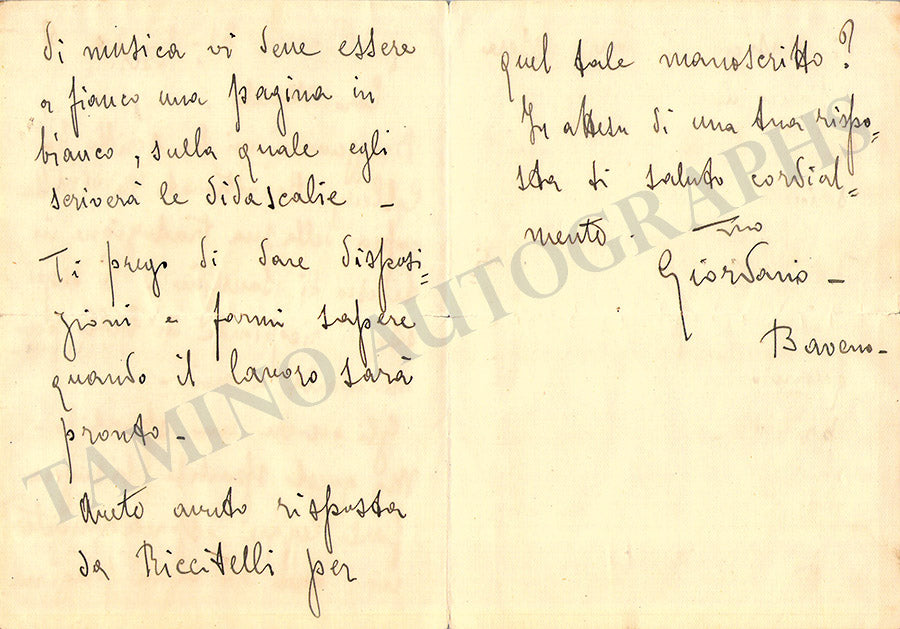 di musica vi deve essere
a fianco una pagina in
bianco, sulla quale egli
scriverà le didascalie –
Ti prego di dare disposi-
zioni e farmi sapere
quando il lavoro sarà
pronto –
Avete avuto risposta
da Riccitelli per
quel tale manoscritto?
In attesa di una tua rispo-
sta ti saluto cordial-
mente.
Tuo
Giordano –
Baveno –
TAMINO AUTOGRAPHS